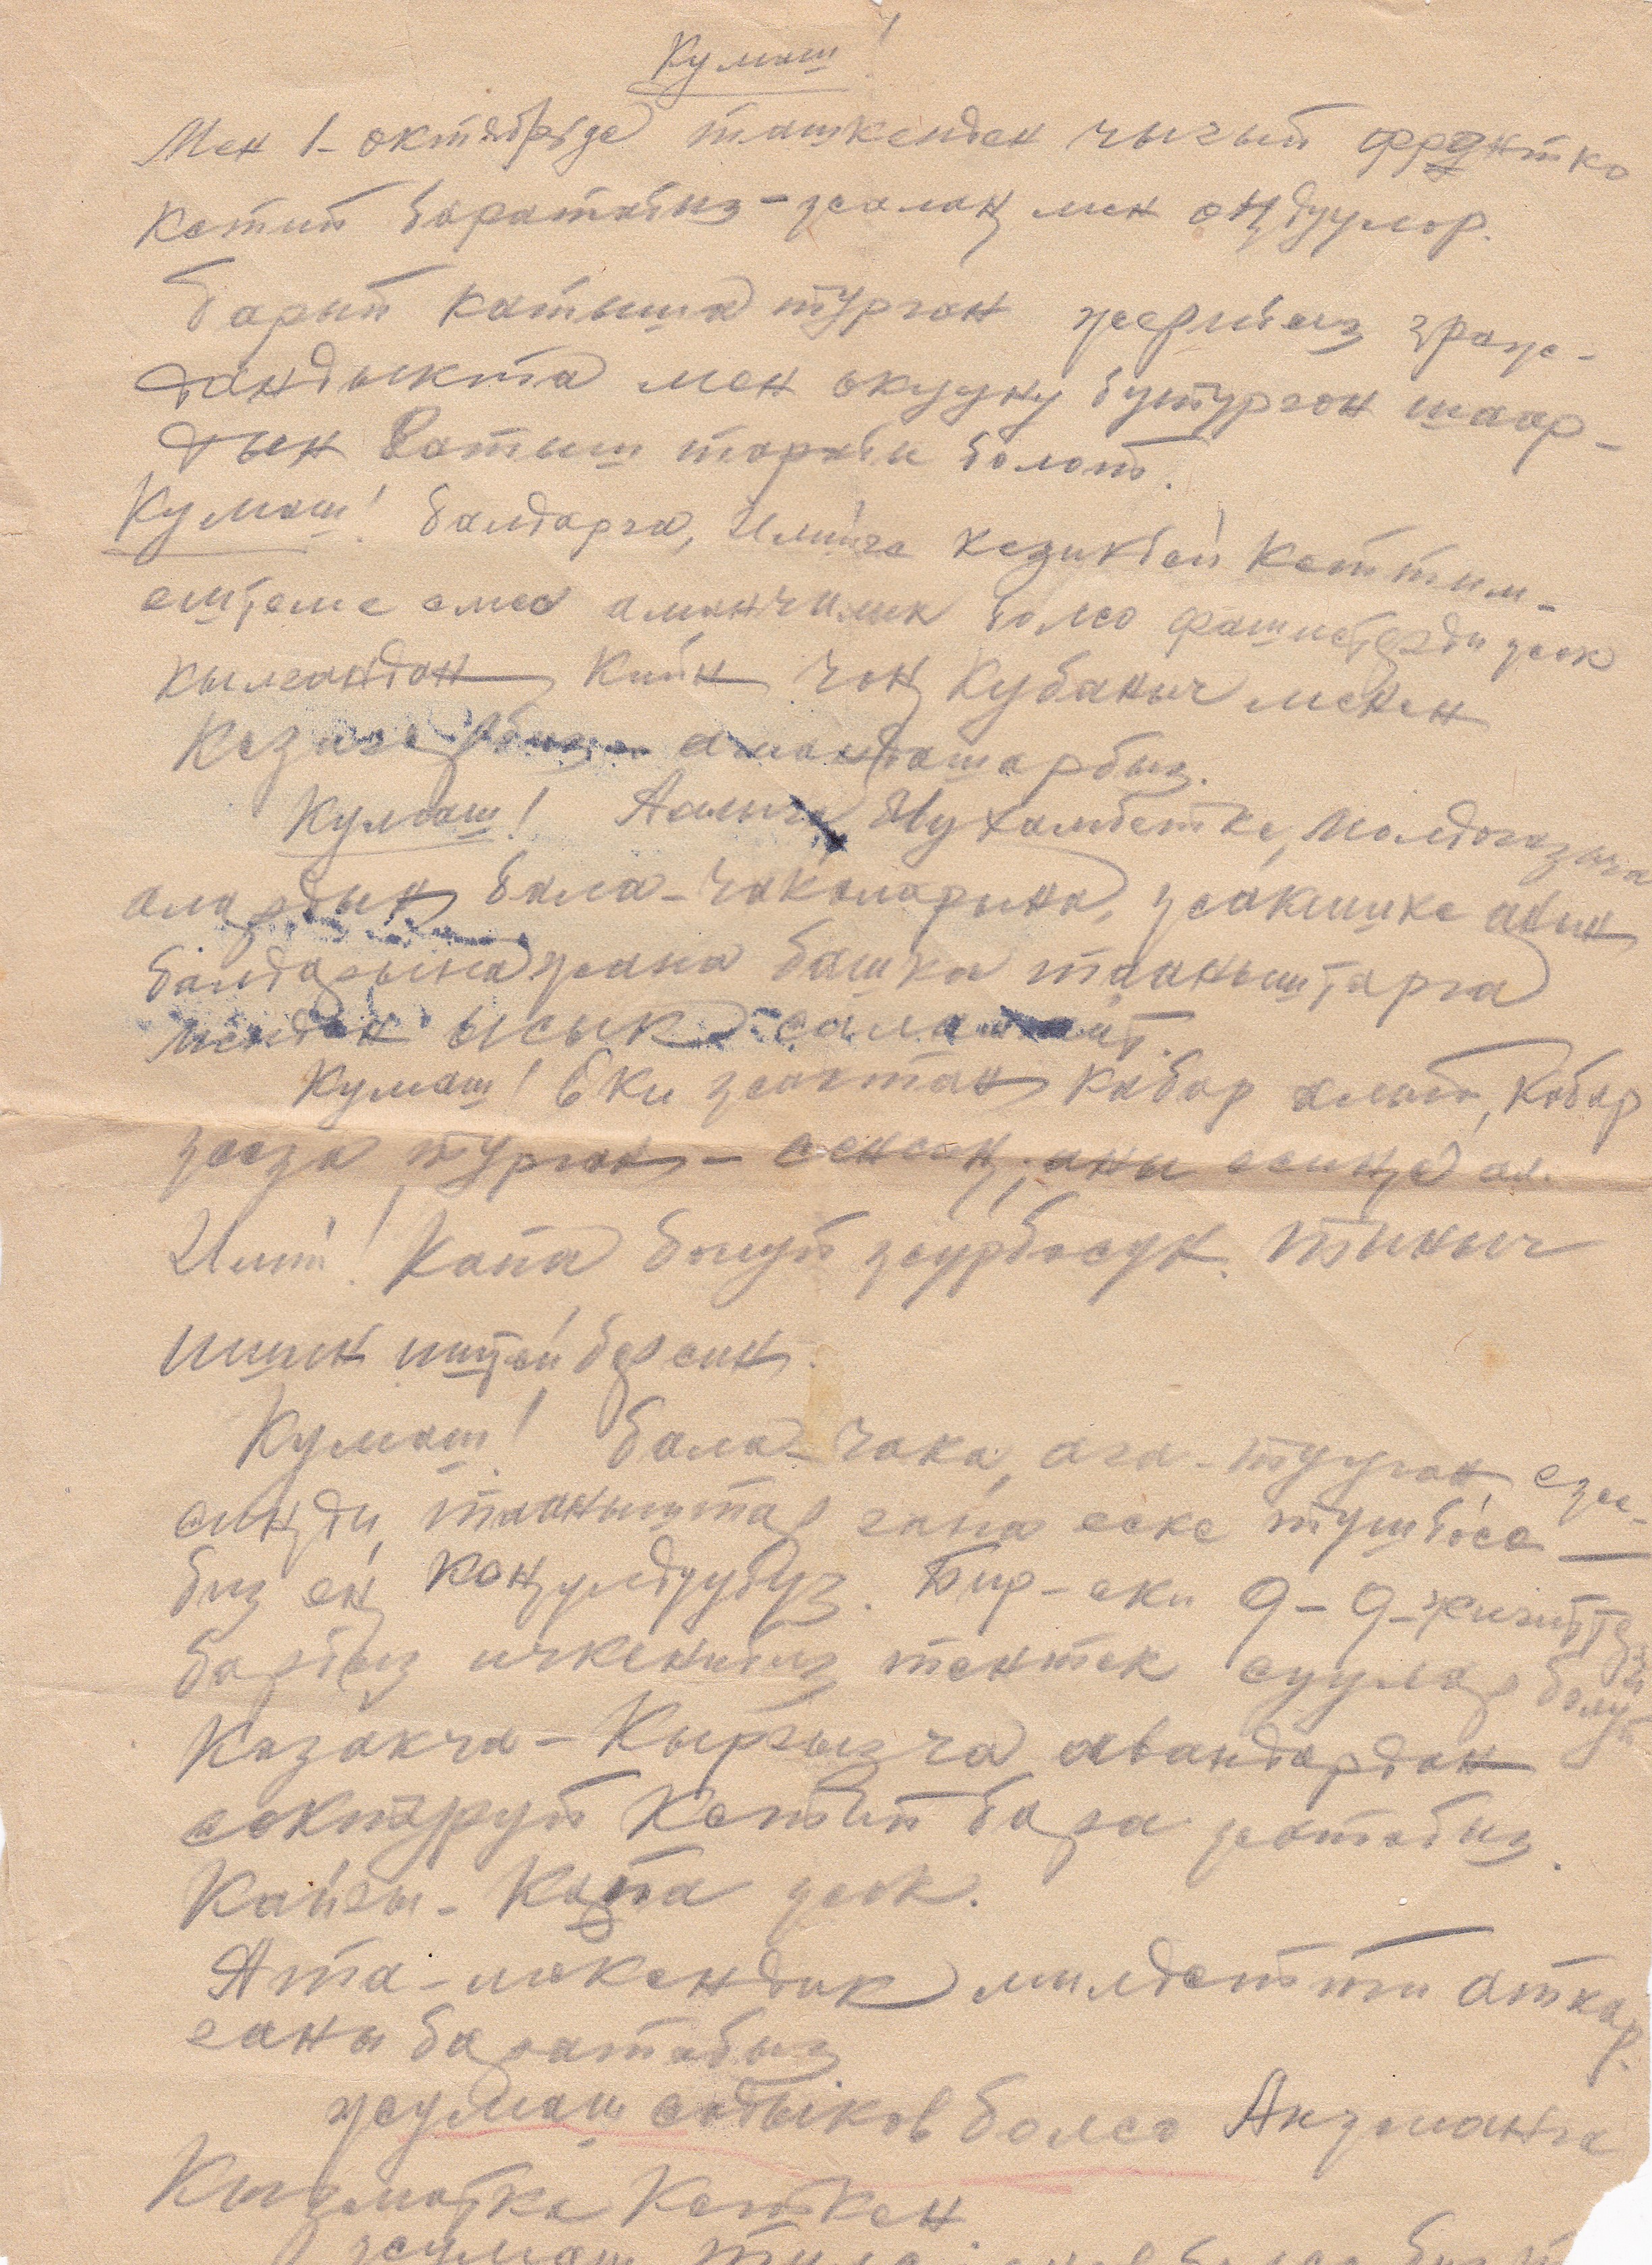 Кумаш!
Мен 1-октябрьде ташкенден чыгып фронтко
кетип баратабыз-жалаң мен оңдуулор.
барып катыша турган жерибиз граж-
дандыкта мен окууну бутургон шаар-
дын батыш тарабы болот.
Кумаш! балдарга, Илийге кезикбей кеттим-
ештеме емес аманчилик болсо фашистерди жок
кылгандан кийн чоң кубаныч менен
амандашарбыз.
Кумаш! Аалыга, Мухамбетке, Молдогазыга
алардын бала-чакаларына, жакшике анын
балдарына жана башка тааныштарга
менден ысык салам айт.
Кумаш! Еки жактан кабар алып, кабар
жаза турган - сенсиң, аны есиңе ал.
Илий! Капа болуп журбосун. тыныч
ишин иштей берсин.
Кумаш! бала-чака, ага-тууган, еже-
сиңди, тааныштар гана еске тушбосе —
биз ең коңулдуубуз. Бир-еки 9-9-жигиттер
барбыз ичкенибиз тентек суулар болуп
Казакча-Кыргызча авандардан
сектируп кетип бара жатабыз.
Кайгы-Капа жок.
Ата-мекендик милдетти аткар-
ганы баратабыз
жумаш садыков болсо
Кызматка кеткен.